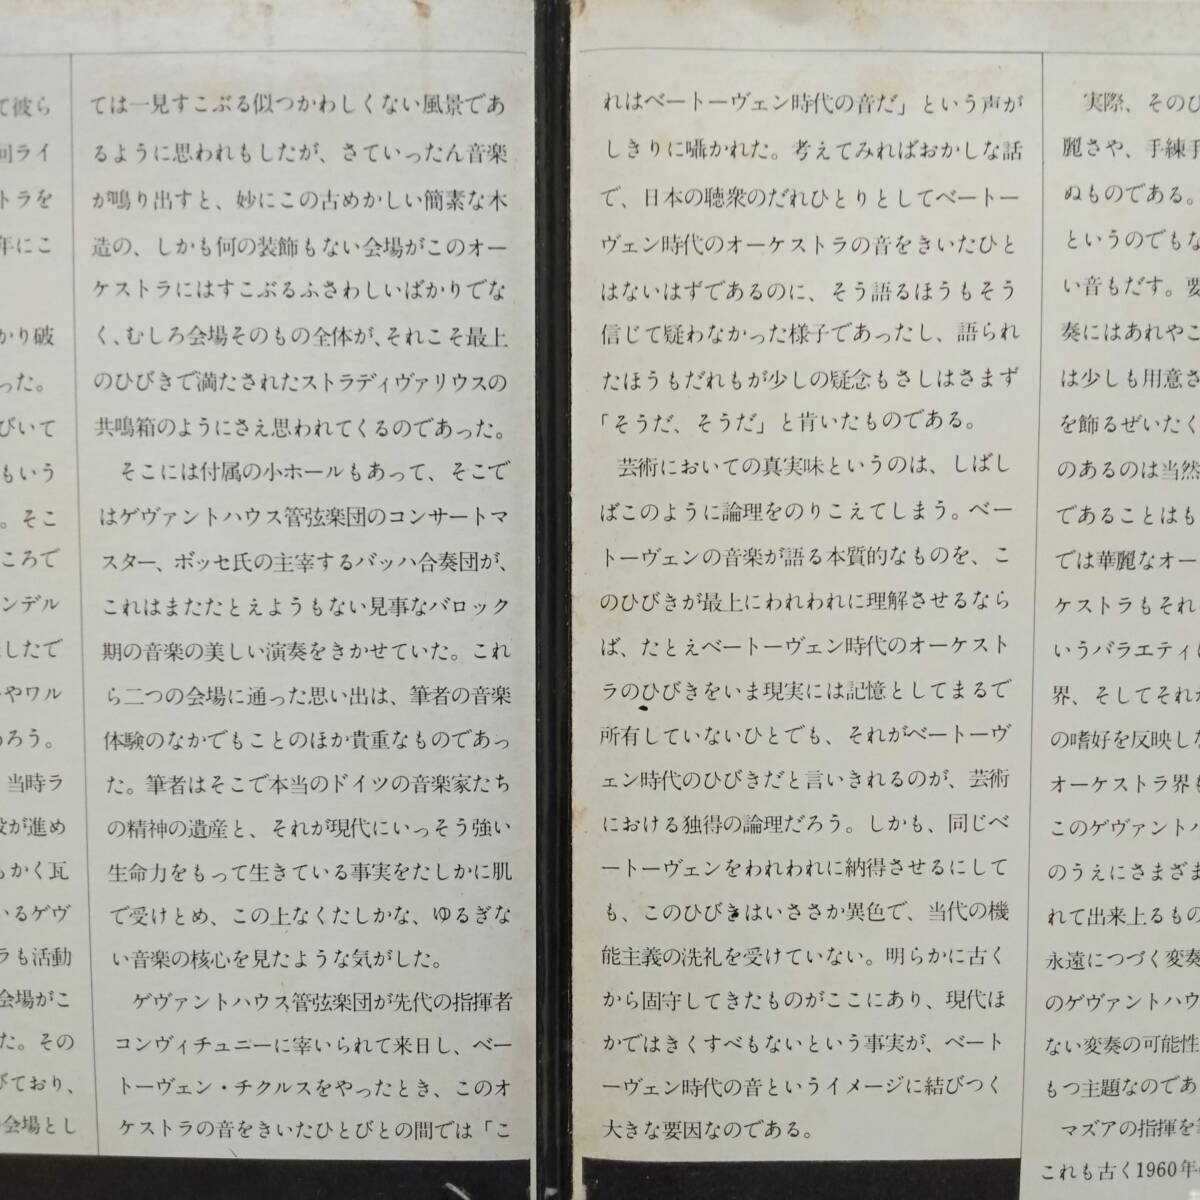 て彼ら
回ライ
トラを
年にこ
かり破
った。
びいて
もいう
。そこ
ころで
ンデル
したで
やワル
ろう。
当時ラ
設が進め
かく瓦
いるゲヴ
ラも活動
会場がこ
た。その
びており、
会場とし
ては一見すこぶる似つかわしくない風景であ
るように思われもしたが、さていったん音楽
が鳴り出すと、妙にこの古めかしい簡素な木
造の、しかも何の装飾もない会場がこのオー
ケストラにはすこぶるふさわしいばかりでな
く、むしろ会場そのもの全体が、それこそ最上
のひびきで満たされたストラディヴァリウスの
共鳴箱のようにさえ思われてくるのであった。
そこには付属の小ホールもあって、そこで
はゲヴァントハウス管弦楽団のコンサートマ
スター、ボッセ氏の主宰するバッハ合奏団が、
これはまたたとえようもない見事なバロック
期の音楽の美しい演奏をきかせていた。これ
ら二つの会場に通った思い出は、筆者の音楽
体験のなかでもことのほか貴重なものであっ
た。筆者はそこで本当のドイツの音楽家たち
の精神の遺産と、それが現代にいっそう強い
生命力をもって生きている事実をたしかに肌
で受けとめ、この上なくたしかな、ゆるぎな
い音楽の核心を見たような気がした。
ゲヴァントハウス管弦楽団が先代の指揮者
コンヴィチュニーに宰いられて来日し、ベー
トーヴェン・チクルスをやったとき、このオ
ケストラの音をきいたひとびとの間では「こ
れはベートーヴェン時代の音だ」という声が
しきりに囁かれた。考えてみればおかしな話
で、日本の聴衆のだれひとりとしてベートー
ヴェン時代のオーケストラの音をきいたひと
はないはずであるのに、そう語るほうもそう
信じて疑わなかった様子であったし、語られ
たほうもだれもが少しの疑念もさしはさまず
「そうだ、そうだ」と肯いたものである。
芸術においての真実味というのは、しばし
ばこのように論理をのりこえてしまう。ベー
トーヴェンの音楽が語る本質的なものを、こ
のひびきが最上にわれわれに理解させるなら
ば、たとえベートーヴェン時代のオーケスト
ラのひびきをいま現実には記憶としてまるで
所有していないひとでも、それがベートーヴ
ェン時代のひびきだと言いきれるのが、芸術
における独得の論理だろう。しかも、同じベ
ートーヴェンをわれわれに納得させるにして
も、このひびきはいささか異色で、当代の機
能主義の洗礼を受けていない。明らかに古く
から固守してきたものがここにあり、現代ほ
かではきくすべもないという事実が、ベート
ーヴェン時代の音というイメージに結びつく
大きな要因なのである。
実際、そのひ
麗さや、手練手
ぬものである。
というのでもな
い音もだす。要
奏にはあれやこ
は少しも用意さ
を飾るぜいたく
のあるのは当然
であることはも
では華麗なオー
ケストラもそれ
いうバラエティに
界、そしてそれが
の嗜好を反映しな
オーケストラ界も
このゲヴァントハ
のうえにさまざま
れて出来上るもの
永遠につづく変奏
のゲヴァントハウ
ない変奏の可能性
もつ主題なのであ
マズアの指揮を
これも古く1960年